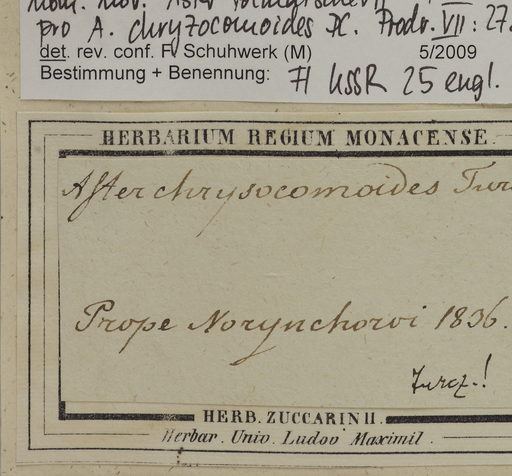 nom. nov. Aster
pro A. chryzocomoides DC. Prodr. VII: 27.
det. rev. conf. F. Schuhwerk (M) 5/2009
Bestimmung + Benennung: Fl UssR 25 engl.
HERBARIUM REGIUM MONACENSE
Aster chrysocomoides Turc
Prope Norynchoroi 1836.
Turcz.!
HERB. ZUCCARINII.
Herbar. Univ. Ludov Maximil.